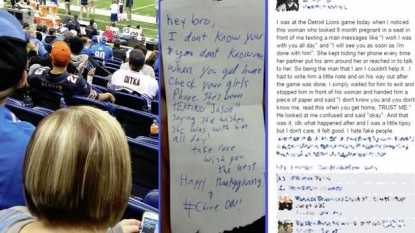 DITKA
hey bro,
I dont know you
& you dont know me
When you get home
Check your girls
Phone. She's been
texting "Jason"
Saying she wishes
She was with him
all day!
take love
wish you
the best
Happy thanksgiving
&
#Chive ON!
I was at the Detroit Lions game today when I noticed
this woman who looked 8-month pregnant in a seat in
front of me texting a man messages like "I wish I was
with you all day" and "I will see you as soon as I'm
done with him". She kept hiding her phone every time
her partner put his arm around her or reached in to talk
to her. So being the man that I am I couldn't help it. I
had to write him a little note and on his way out after
the game was done, I simply waited for him to exit and
stopped him in front of his woman and handed him a
piece of paper and said "I don't know you and you don't
know me, read this when you get home, TRUST ME."
He looked at me confused and said "okay". And that
was it, idk what happened after and I was a little tipsy
but I don't care, it felt good. I hate fake people.